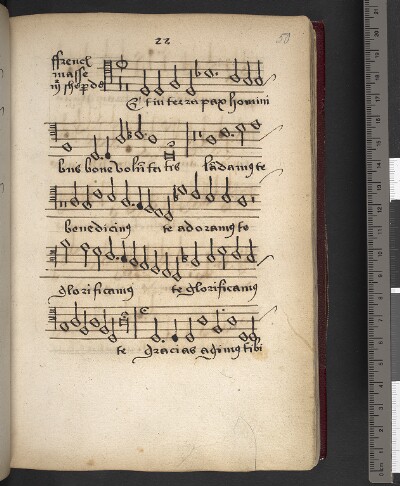 22
58
ffrench
masse
Et in terra pax homini
bus bone volūtatis laudamus te
benedicimus te adoramus te
glorificamus te glorificamus
te gracias agimus tibi